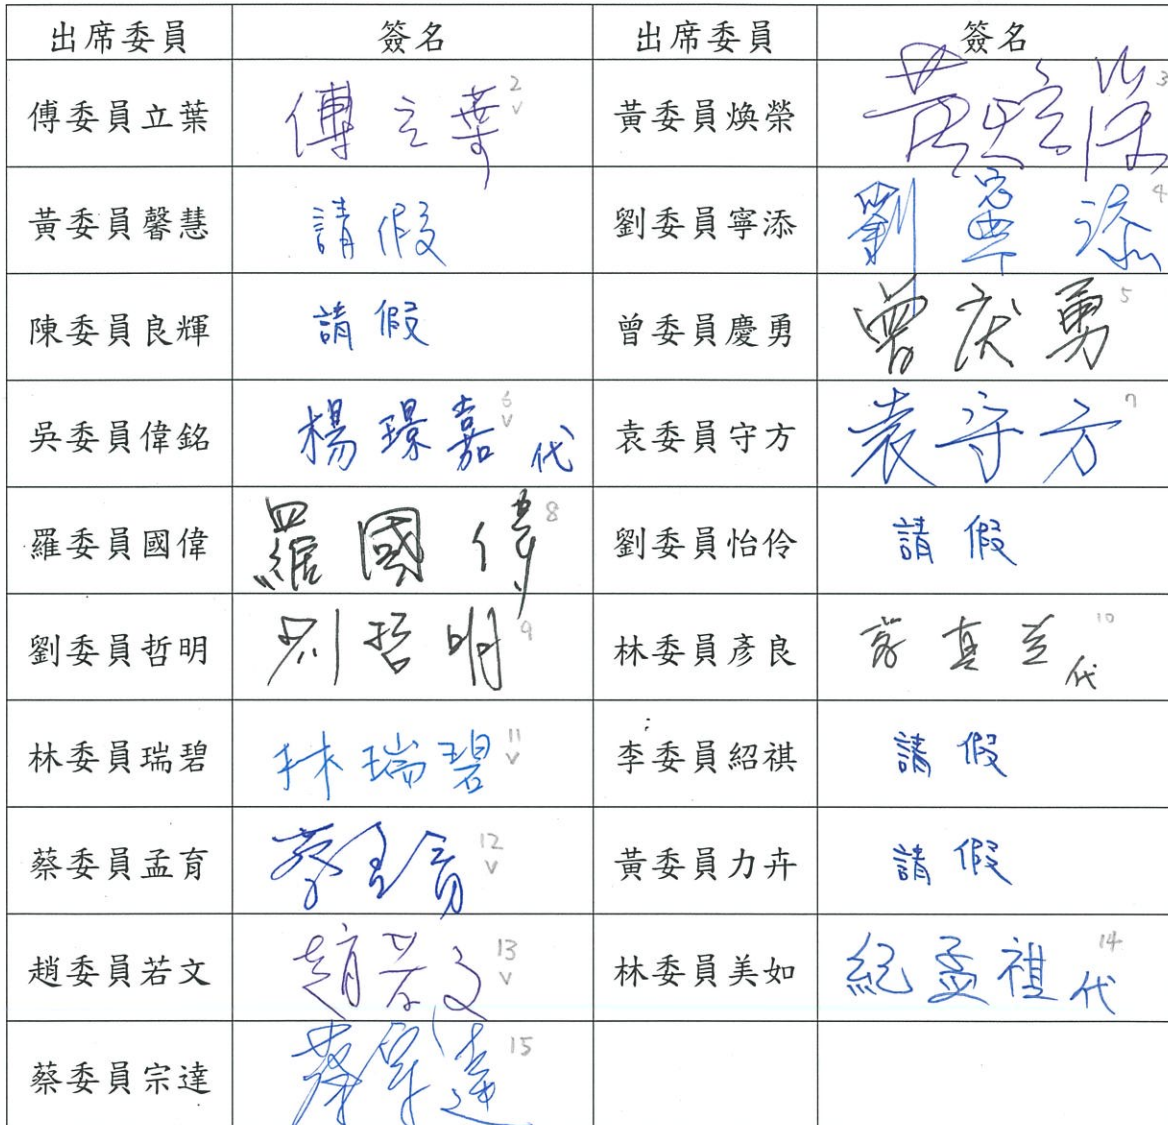 出席委員 簽名 出席委員 簽名
傅委員立葉 傅立葉 2 v 黃委員煥榮 黃煥榮 3
黃委員馨慧 請假 劉委員寧添 劉寧添 4
陳委員良輝 請假 曾委員慶勇 曾庆勇 5
吳委員偉銘 楊璟嘉代 6 v 袁委員守方 袁守方 7
羅委員國偉 羅國偉 8 劉委員怡伶 請假
劉委員哲明 刘哲明 9 林委員彥良 真 代 10
林委員瑞碧 林瑞碧 11 v 李委員紹祺 請假
蔡委員孟育 蔡孟育 12 v 黃委員力卉 請假
趙委員若文 趙若文 13 v 林委員美如 紀孟祺代 14
蔡委員宗達 蔡宗達 15